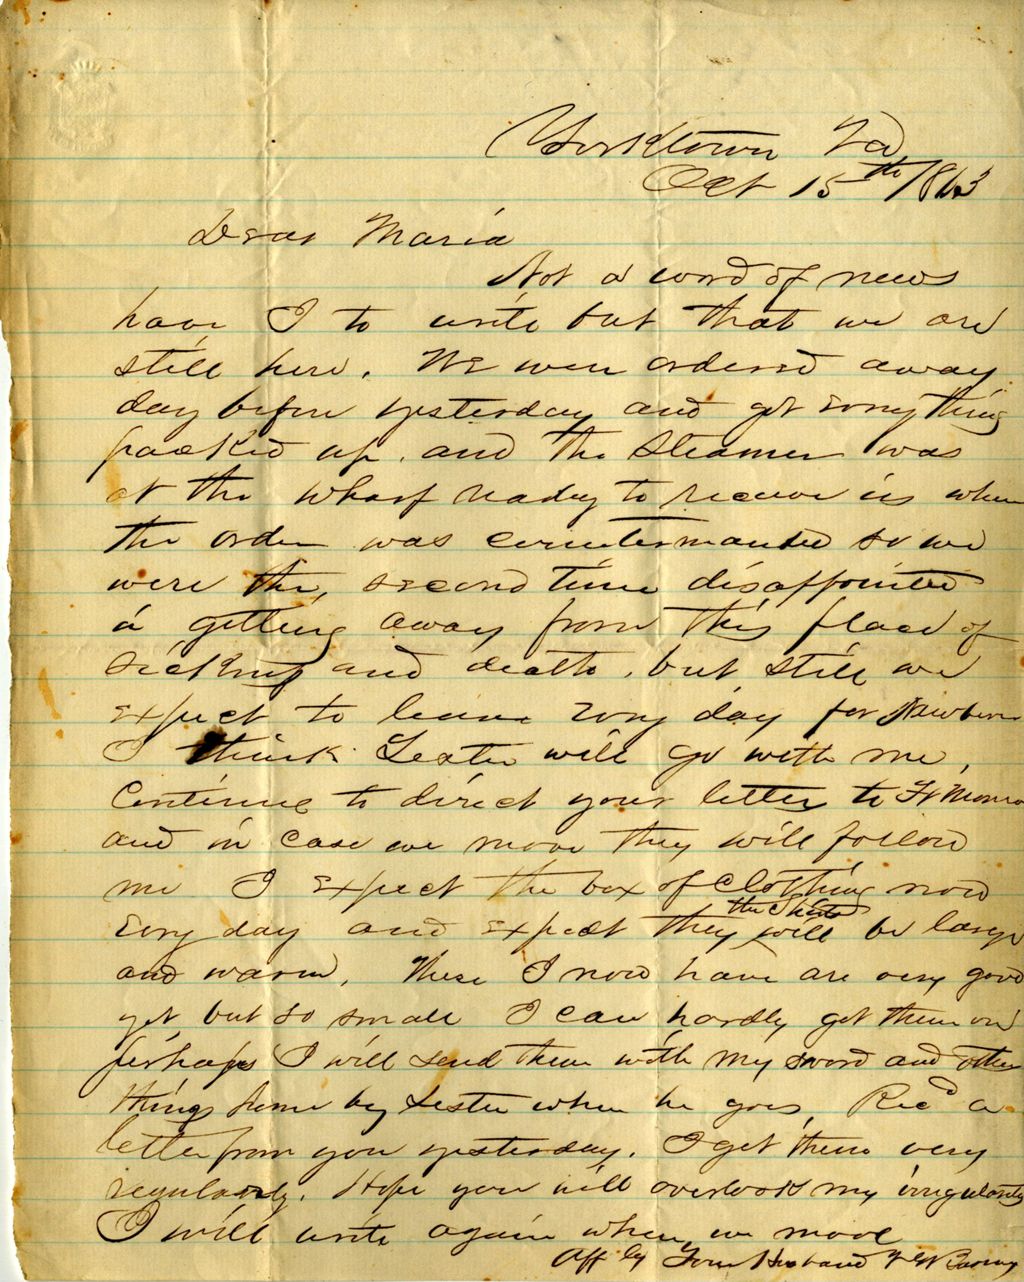 Yorktown Va
Oct 15th 1863
Dear Maria
Not a word of news
have I to write but that we are
still here. We were ordered away
day before yesterday and got every thing
packed up, and the steamer was
at the wharf ready to receive us when
the order was countermanded so we
were the second time disappointed
a getting away from this place of
sickness and death, but still we
expect to leave every day for Newbern
I think Lester will go with me,
Continue to direct your letter to Ft Monro
and in case we move they will follow
me I expect the box of clothing now
the shirts
every day and expect they will be large
and warm. These I now have are very good
yet, but so small I can hardly get them on
perhaps I will send them with my sword and other
things home by Lester when he goes, Recd a
letter from you yesterday. I get them very
regularly. Hope you will overlook my irregularity
I will write again when we move
Aff ly Your Husband